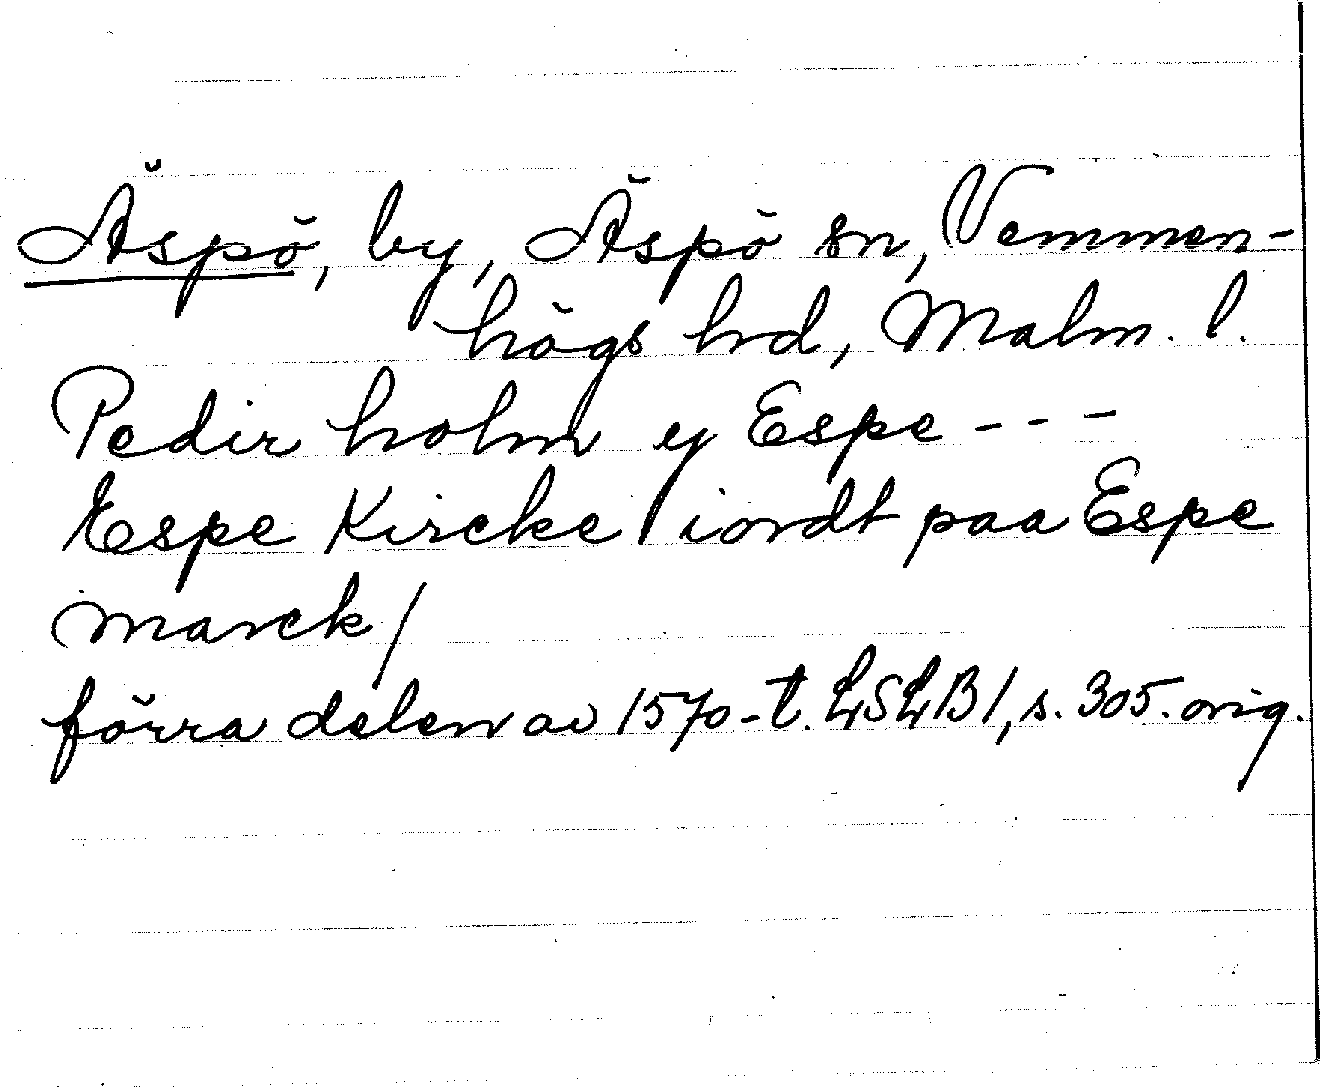 Äspö, by, Äspö sn, Vemmen-
högs hd, Malm. l.
Pedir holm y Espe - - -
Espe Kircke iordt paa Espe
marck/
förra delen av 1570-t. LSLB1, s. 305. orig.